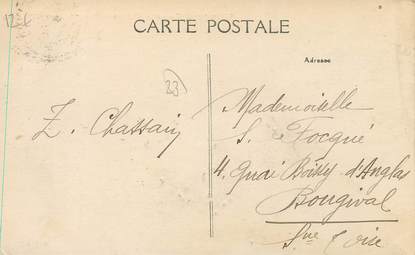 CARTE POSTALE
Adresse
23
Z. Chassaing
Mademoiselle
S. Focqué
4, Quai Boissy d'Anglas
Bougival
Sne & Oise